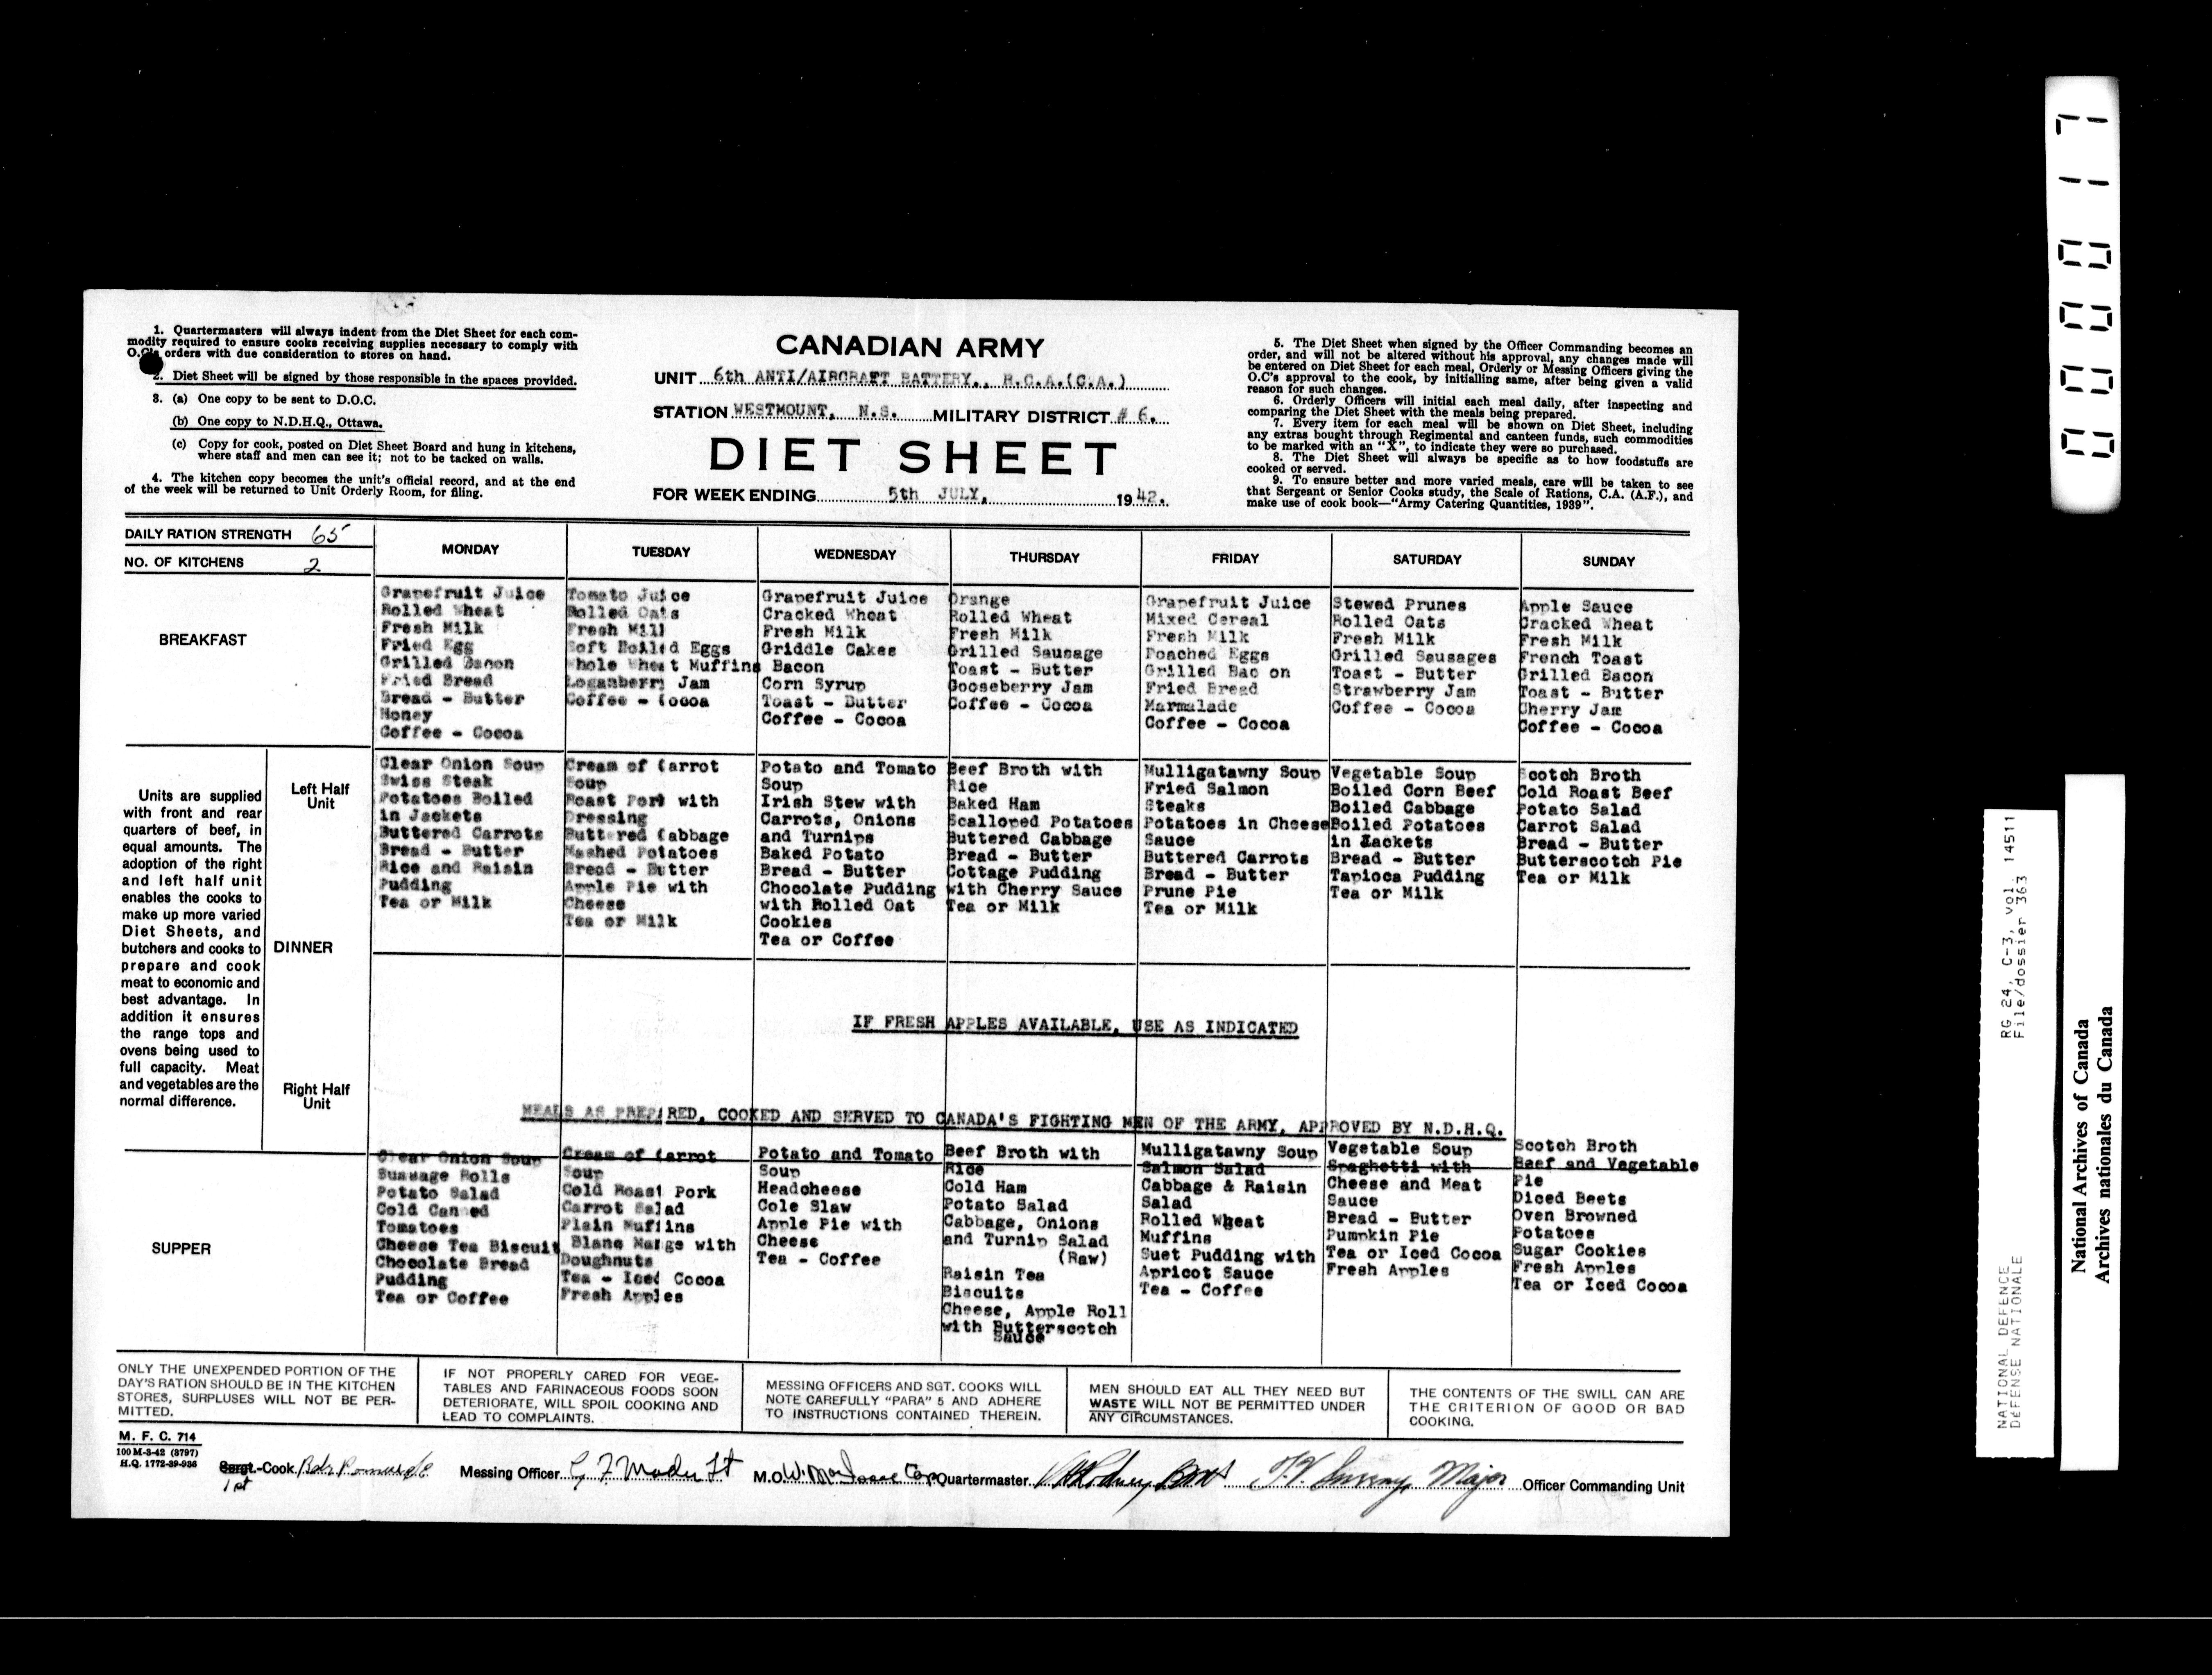 1. Quartermasters will always indent from the Diet Sheet for each com-
modity required to ensure cooks receiving supplies necessary to comply with
O.C's orders with due consideration to stores on hand.
2. Diet Sheet will be signed by those responsible in the spaces provided.
3. (a) One copy to be sent to D.O.C.
(b) One copy to N.D.H.Q., Ottawa.
(c) Copy for cook, posted on Diet Sheet Board and hung in kitchens,
where staff and men can see it; not to be tacked on walls.
4. The kitchen copy becomes the unit's official record, and at the end
of the week will be returned to Unit Orderly Room, for filing.
CANADIAN ARMY
UNIT 6th ANTI/AIRCRAFT BATTERY., R.C.A.(C.A.)
STATION WESTMOUNT, N.S. MILITARY DISTRICT # 6.
DIET SHEET
FOR WEEK ENDING 5th JULY, 1942.
5. The Diet Sheet when signed by the Officer Commanding becomes an
order, and will not be altered without his approval, any changes made will
be entered on Diet Sheet for each meal, Orderly or Messing Officers giving the
O.C's approval to the cook, by initialling same, after being given a valid
reason for such changes.
6. Orderly Officers will initial each meal daily, after inspecting and
comparing the Diet Sheet with the meals being prepared.
7. Every item for each meal will be shown on Diet Sheet, including
any extras bought through Regimental and canteen funds, such commodities
to be marked with an "X", to indicate they were so purchased.
8. The Diet Sheet will always be specific as to how foodstuffs are
cooked or served.
9. To ensure better and more varied meals, care will be taken to see
that Sergeant or Senior Cooks study, the Scale of Rations, C.A. (A.F.), and
make use of cook book—"Army Catering Quantities, 1939".
DAILY RATION STRENGTH 65
NO. OF KITCHENS 2
MONDAY
TUESDAY
WEDNESDAY
THURSDAY
FRIDAY
SATURDAY
SUNDAY
BREAKFAST
Grapefruit Juice
Rolled Wheat
Fresh Milk
Fried Egg
Grilled Bacon
Fried Bread
Bread - Butter
Honey
Coffee - Cocoa
Tomato Juice
Rolled Oats
Fresh Milk
Soft Boiled Eggs
Whole Wheat Muffins
Loganberry Jam
Coffee - Cocoa
Grapefruit Juice
Cracked Wheat
Fresh Milk
Griddle Cakes
Bacon
Corn Syrup
Toast - Butter
Coffee - Cocoa
Orange
Rolled Wheat
Fresh Milk
Grilled Sausage
Toast - Butter
Gooseberry Jam
Coffee - Cocoa
Grapefruit Juice
Mixed Cereal
Fresh Milk
Poached Eggs
Grilled Bac on
Fried Bread
Marmalade
Coffee - Cocoa
Stewed Prunes
Rolled Oats
Fresh Milk
Grilled Sausages
Toast - Butter
Strawberry Jam
Coffee - Cocoa
Apple Sauce
Cracked Wheat
Fresh Milk
French Toast
Grilled Bacon
Toast - Butter
Cherry Jam
Coffee - Cocoa
Units are supplied
with front and rear
quarters of beef, in
equal amounts. The
adoption of the right
and left half unit
enables the cooks to
make up more varied
Diet Sheets, and
butchers and cooks to
prepare and cook
meat to economic and
best advantage. In
addition it ensures
the range tops and
ovens being used to
full capacity. Meat
and vegetables are the
normal difference.
Left Half
Unit
DINNER
Right Half
Unit
Clear Onion Soup
Swiss Steak
Potatoes Boiled
in Jackets
Buttered Carrots
Bread - Butter
Rice and Raisin
Pudding
Tea or Milk
Cream of Carrot
Soup
Roast Pork with
Dressing
Buttered Cabbage
Mashed Potatoes
Bread - Butter
Apple Pie with
Cheese
Tea or Milk
Potato and Tomato
Soup
Irish Stew with
Carrots, Onions
and Turnips
Baked Potato
Bread - Butter
Chocolate Pudding
with Rolled Oat
Cookies
Tea or Coffee
Beef Broth with
Rice
Baked Ham
Scalloped Potatoes
Buttered Cabbage
Bread - Butter
Cottage Pudding
with Cherry Sauce
Tea or Milk
Mulligatawny Soup
Fried Salmon
Steaks
Potatoes in Cheese
Sauce
Buttered Carrots
Bread - Butter
Prune Pie
Tea or Milk
Vegetable Soup
Boiled Corn Beef
Boiled Cabbage
Boiled Potatoes
in Jackets
Bread - Butter
Tapioca Pudding
Tea or Milk
Scotch Broth
Cold Roast Beef
Potato Salad
Carrot Salad
Bread - Butter
Butterscotch Pie
Tea or Milk
IF FRESH APPLES AVAILABLE, USE AS INDICATED
MEALS AS PREPARED, COOKED AND SERVED TO CANADA'S FIGHTING MEN OF THE ARMY, APPROVED BY N.D.H.Q.
SUPPER
Clear Onion Soup
Suasage Rolls
Potato Salad
Cold Canned
Tomatoes
Cheese Tea Biscuit
Chocolate Bread
Pudding
Tea or Coffee
Cream of Carrot
Soup
Cold Roast Pork
Carrot Salad
Plain Muffins
Blanc Mange with
Doughnuts
Tea - Iced Cocoa
Fresh Apples
Potato and Tomato
Soup
Headcheese
Cole Slaw
Apple Pie with
Cheese
Tea - Coffee
Beef Broth with
Rice
Cold Ham
Potato Salad
Cabbage, Onions
and Turnip Salad
(Raw)
Raisin Tea
Biscuits
Cheese, Apple Roll
with Butterscotch
Sauce
Mulligatawny Soup
Salmon Salad
Cabbage & Raisin
Salad
Rolled Wheat
Muffins
Suet Pudding with
Apricot Sauce
Tea - Coffee
Vegetable Soup
Spaghetti with
Cheese and Meat
Sauce
Bread - Butter
Pumpkin Pie
Tea or Iced Cocoa
Fresh Apples
Scotch Broth
Beef and Vegetable
Pie
Diced Beets
Oven Browned
Potatoes
Sugar Cookies
Fresh Apples
Tea or Iced Cocoa
ONLY THE UNEXPENDED PORTION OF THE
DAY'S RATION SHOULD BE IN THE KITCHEN
STORES, SURPLUSES WILL NOT BE PER-
MITTED.
IF NOT PROPERLY CARED FOR VEGE-
TABLES AND FARINACEOUS FOODS SOON
DETERIORATE, WILL SPOIL COOKING AND
LEAD TO COMPLAINTS.
MESSING OFFICERS AND SGT. COOKS WILL
NOTE CAREFULLY "PARA" 5 AND ADHERE
TO INSTRUCTIONS CONTAINED THEREIN.
MEN SHOULD EAT ALL THEY NEED BUT
WASTE WILL NOT BE PERMITTED UNDER
ANY CIRCUMSTANCES.
THE CONTENTS OF THE SWILL CAN ARE
THE CRITERION OF GOOD OR BAD
COOKING.
M. F. C. 714
100 M-3-42 (8797)
H.Q. 1772-39-936
Sergt.-Cook Bdr
Messing Officer Lt
M.O.
Quartermaster
Major Officer Commanding Unit
000017
RG 24, C-3, vol. 14511
File/dossier 363
NATIONAL DEFENCE
DEFENSE NATIONALE
National Archives of Canada
Archives nationales du Canada